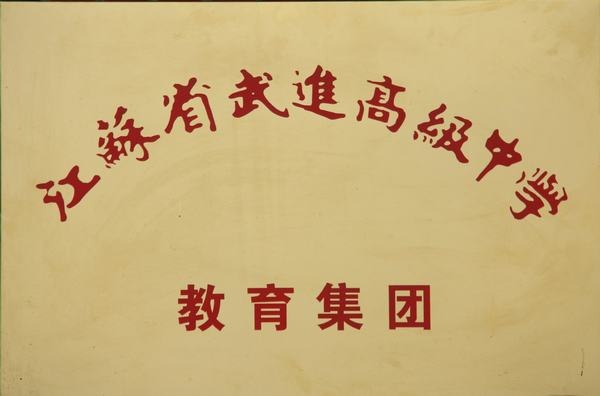 江蘇省武進高級中学
教育集团